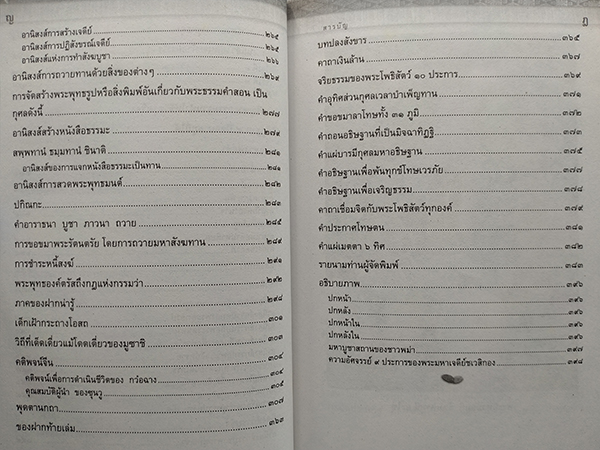 ญ
อานิสงส์การสร้างเจดีย์ ๒๖๕
อานิสงส์การปฏิสังขรณ์เจดีย์ ๒๖๕
อานิสงส์แห่งการทำสังฆบูชา ๒๖๖
อานิสงส์การถวายทานด้วยสิ่งของต่างๆ ๒๖๙
การจัดสร้างพระพุทธรูปหรือสิ่งพิมพ์อันเกี่ยวกับพระธรรมคำสอน เป็น
กุศลดังนี้ ๒๗๗
อานิสงส์สร้างหนังสือธรรมะ ๒๗๙
สพฺพทานํ ธมฺมทานํ ชินาติ ๒๘๑
อานิสงส์ของการแจกหนังสือธรรมะเป็นทาน ๒๘๑
อานิสงส์การสวดพระพุทธมนต์ ๒๘๒
ปกิณกะ ๒๘๓
คำอาราธนา บูชา ภาวนา ถวาย ๒๘๕
การขอขมาพระรัตนตรัย โดยการถวายมหาสังฆทาน ๒๘๙
การชำระหนี้สงฆ์ ๒๙๑
พระพุทธองค์ตรัสถึงกฎแห่งกรรมว่า ๒๙๒
ภาคของฝากน่ารู้ ๒๙๘
เด็กเฝ้ากระถางโอสถ ๓๐๑
วิถีที่เด็ดเดี่ยวแม้โดดเดี่ยวของมูซาชิ ๓๐๓
คติพจน์จีน ๓๐๔
คติพจน์เพื่อการดำเนินชีวิตของ กว่อฉาง ๓๐๔
คุณสมบัติผู้นำ ของซุนวู ๓๐๕
พุดตานกถา ๓๐๗
ของฝากท้ายเล่ม ๓๖๓
สารบัญ
ฎ
บทปลงสังขาร ๓๖๕
คาถาเงินล้าน ๓๖๘
จริยธรรมของพระโพธิสัตว์ ๑๐ ประการ ๓๖๙
คำอุทิศส่วนกุศลเวลาบำเพ็ญทาน ๓๗๑
คำขอขมาลาโทษทั้ง ๓๑ ภูมิ ๓๗๒
คำถอนอธิษฐานที่เป็นมิจฉาทิฏฐิ ๓๗๓
คำแผ่บารมีกุศลมหาอธิษฐาน ๓๗๕
คำอธิษฐานเพื่อพ้นทุกข์โทษเวรภัย ๓๗๗
คำอธิษฐานเพื่อเจริญธรรม ๓๗๘
คาถาเชื่อมจิตกับพระโพธิสัตว์ทุกองค์ ๓๗๙
คำประกาศโทษตน ๓๗๙
คำแผ่เมตตา ๖ ทิศ ๓๘๒
รายนามท่านผู้จัดพิมพ์ ๓๘๓
อธิบายภาพ ๓๙๖
ปกหน้า ๓๙๖
ปกหลัง ๓๙๖
ปกหน้าใน ๓๙๖
ปกหลังใน ๓๙๖
มหาบูชาสถานของชาวพม่า ๓๙๗
ความอัศจรรย์ ๙ ประการของพระมหาเจดีย์ชเวสิกอง ๓๙๘